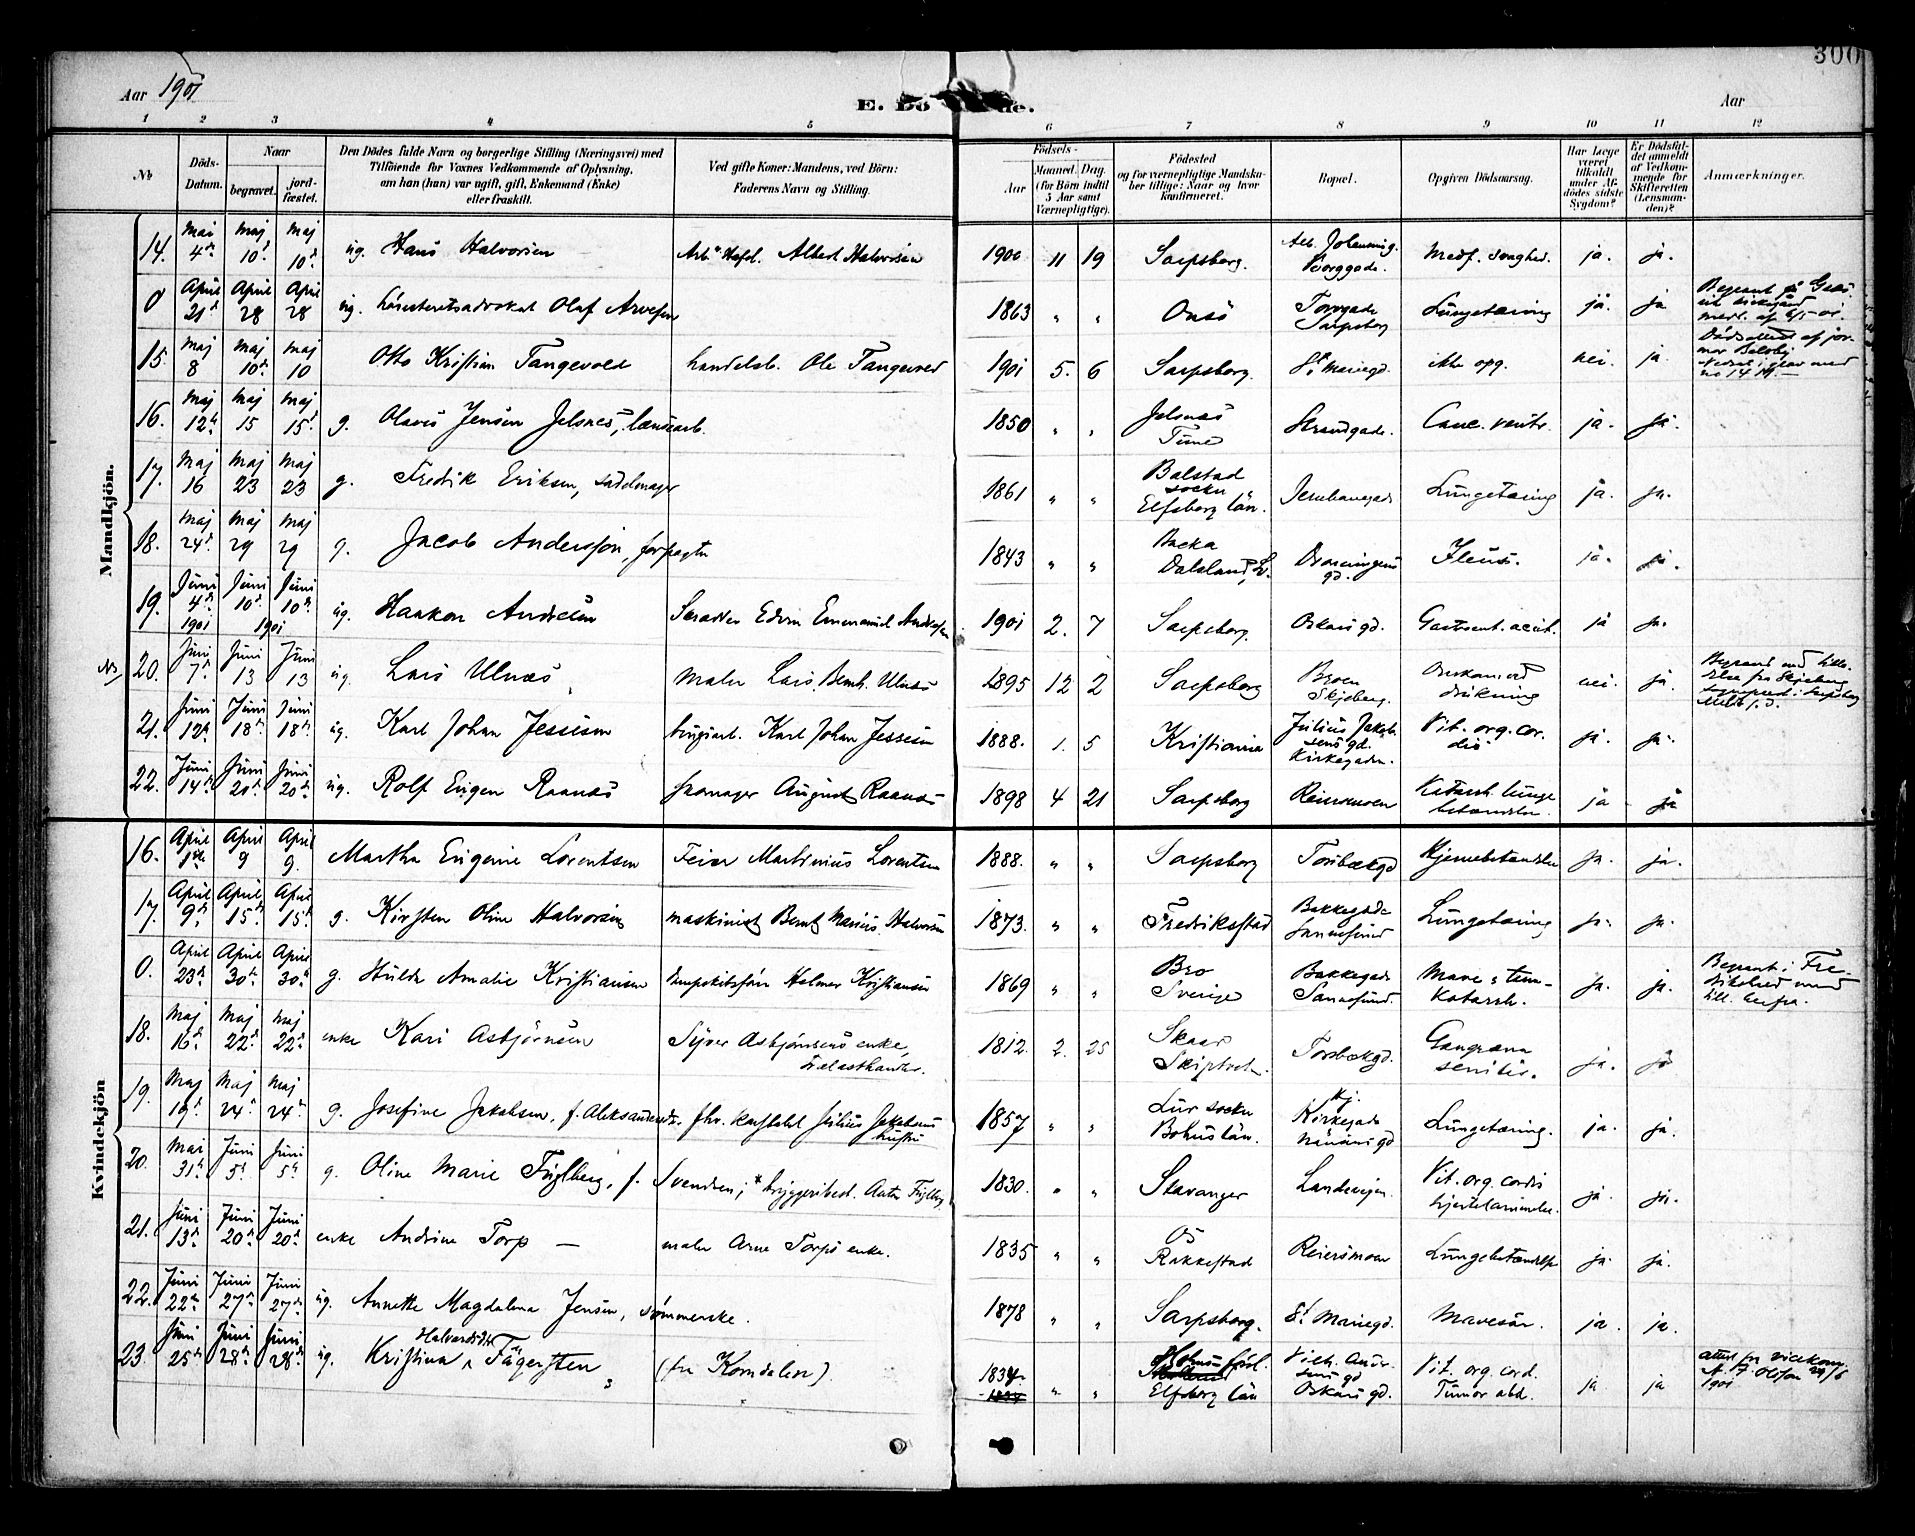 300
Aar 1901
E. Dö de.
Aar
1 2 3 4 5 6 7 8 9 10 11 12
No
Döds-Datum.
Naar
begravet.
jord-fæstet.
Den Dödes fulde Navn og borgerlige Stilling (Næringsvei) med
Tilföiende for Voxnes Vedkommende af Oplysning,
om han (hun) var ugift, gift, Enkemand (Enke)
eller fraskilt.
Ved gifte Koner: Mandens, ved Börn:
Faderens Navn og Stilling.
Födsels-
Aar
Maaned. Dag.
(for Börn indtil
5 Aar samt
Værnepligtige).
Födested
og for værnepligtige Mandska-
ber tillige: Naar og hvor
konfirmeret.
Bopæl.
Opgiven Dödsaarsag.
Har Læge
været
tilkaldt
under Af-
dödes sidste
Sygdom?
Er Dödsfal-
det anmeldt
af Vedkom-
mende for
Skifteretten
(Lensman-
den)?
Anmærkninger.
Mandkjön.
14. Mai 4de Maj 10de Maj 10de ug. Hans Halvorsen Albert Halvorsen 1900 11 19 Sarpsborg. Borggade. Medf. svaghed. ja. ja.
0 April 21de April 28 April 28 ug. Olaf Arvesen 1863 " " Onsö Torvgade Sarpsborg Lungetæring ja. ja
15. Maj 8 Maj 10de Maj 10 Otto Kristian Tangevold handelsb. Ole Tangevold 1901 5. 6 Sarpsborg. St Mariegd. ikke opg. nei. ja.
16. Maj 12te Maj 15 Maj 15de g. Olaus Jensen Jelsnes, lænsearb. 1850 " " Jelsnæs Tune Strandgade. Canc. ventr. ja. ja.
17. Maj 16 Maj 23 Maj 23 g. Fredrik Eriksen, sadelmager 1861 " " Bolstad socken Elfsborg län. Jernbanegade Lungetæring ja. ja.
18. Maj 24de Maj 29 Maj 29 g. Jacob Andersson, forpagter 1843 " " Backa Dalsland, S. Dronningens gd. Ileus. ja. ja.
19. Juni 4de 1901 Juni 10de Juni 10de 1901 ug. Haakon Andresen Skrædder Edvin Emmanuel Andresen 1901 2. 7 Sarpsborg. Oskars gd. Gastroent. acut. ja ja.
20. Juni 7de Juni 13 Juni 13 ug. Lars Ulnæs Maler Lars Bernh. Ulnæs 1895 12 2 Sarpsborg Broen Skjeberg. Omkom. ved drukning nei. ja.
21. Juni 12te Juni 18de Juni 18de ug. Karl Johan Jessesen brugsarb. Karl Johan Jessesen 1888. 1. 5 Kristiania Julius Jakobsens gd. Kirkegaden. Vit. org. cordis ja. ja.
22. Juni 14de Juni 20de Juni 20de ug. Rolf Eugen Raanæs skomager August Raanæs 1898 4 21 Sarpsborg Reiersmoen Katarrh. lungebetændelse. ja ja
Kvindekjön
16. April 1ste April 9 April 9. Martha Eugenie Lorentsen Feier Martinius Lorentsen 1888. " " Sarpsborg Torsbækgd Hjernebetændelse ja. ja.
17. April 9de April 15de April 15de g. Kirsten Oline Halvorsen maskinist Bernt Marius Halvorsen 1873. " " Fredriksstad Bakkegade Sannesund Lungetæring ja. ja.
0. April 23de April 30te April 30te g. Hulda Amalie Kristiansen Holmer Kristiansen 1869 " " Bro Sverige Bakkegade Sannesund. Mave & tarm-Katarrh. ja. ja.
18. Maj 16de Maj 22de Maj 22de enke Kari Asbjörnsen Syver Asbjörnsens enke, 1812. 2. 25 Skaar Skiptvet. Torsbækgd. Gangræna senilis. ja. ja
19. Maj 19de Maj 24de Maj 24de g. Josefine Jakobsen, f. Aleksandersdr. Julius Jakobsens hustru 1857 " " Lur socken Bohuslän. Kirkegade Lungetæring. ja. ja.
20. Mai 31te Juni 5te Juni 5te g. Oline Marie Fuglberg, f. Svendsen; bryggeribest. Fuglberg, 1830. " " Stavanger Landevejen. Vit. org. cordis hjertelammelse. ja. ja.
21. Juni 13de Juni 20de Juni 20de enke Andrine Torp — maler Arne Torps enke. 1835 " " Os Rakkestad Reiersmoen Lungebetændelse ja. ja.
22. Juni 22de Juni 27de Juni 27de ug. Annette Magdalena Jensen, sömmerske. 1878 " " Sarpsborg. St Mariegd. Mavesår. ja. ja.
23. Juni 25de Juni 28de Juni 28de ug. Kristina Halvardsdtr Fägersten, (fra Korndalen). 1834. " " Elfsborg län Oskars gd. Vit. org. cord. Tumor abd. ja ja